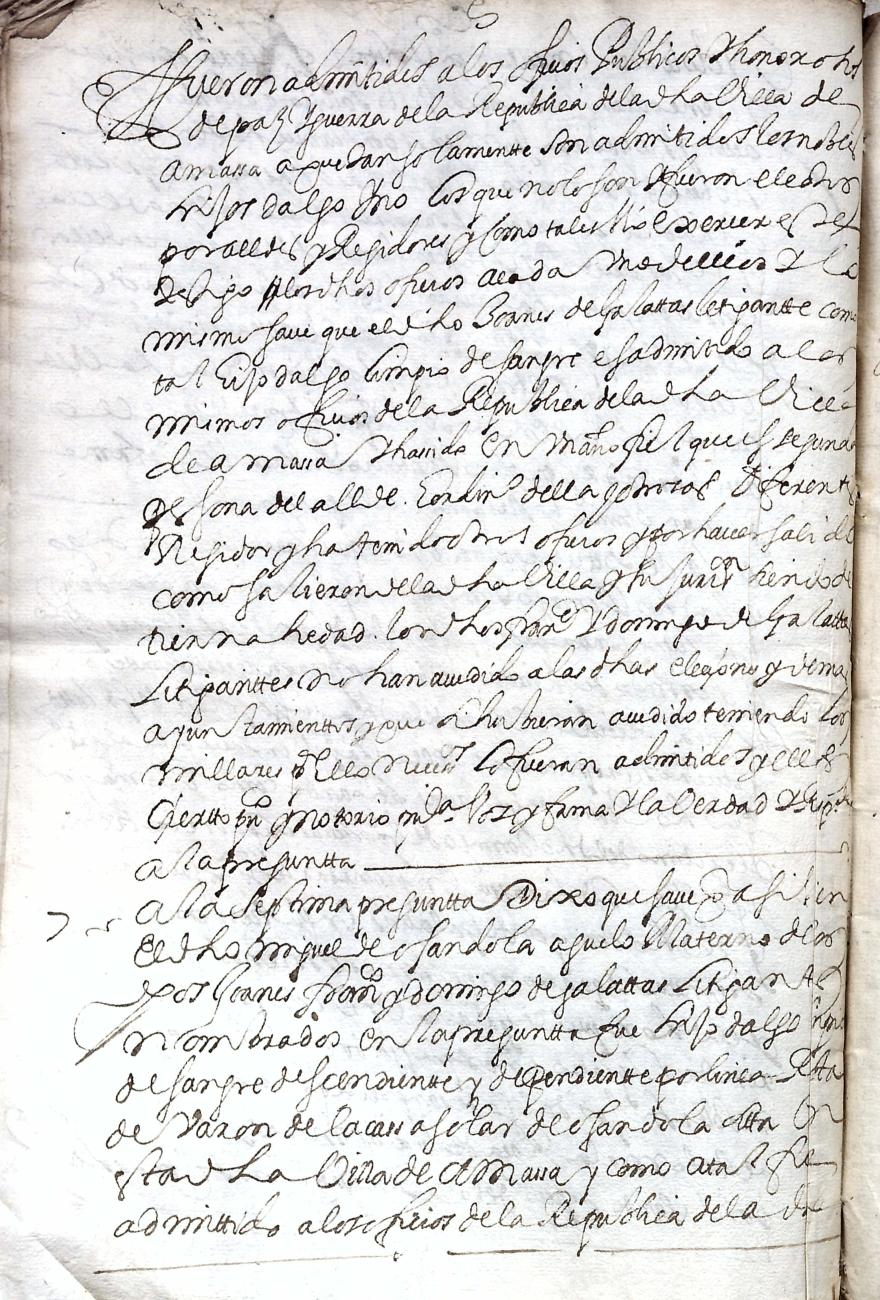 fueron admitidos a los ofiçios Publicos Y honorosos
de paz Y guerra de la Republica de la dha Villa de
amassa a que tan solamentte son admitidos los nobles
hijos dalgo Y no los que no lo son Y fueron electos
por alldes y Regidores y como tales
los dhos ofiçios Y lo
mismo save que el dho Joanes de Galattas litigantte como
tal hijo dalgo limpio de sangre es admitido a los
mismos ofiçios de la Republica de la dha Villa
de amassa Y ha ssido en Mano fiel que es segunda
Persona del allde hordino della y otrosas diferentes
Regidor y ha tenido otros ofiçios y por haver salido
como salieron de la dha Villa y su Jurin siendo de
tierna hedad los dhos franco Y domingo de Galatta
Litiganttes no han acudido a las dhas eleçiones y demas
ayuntamienttos y que si hubieran acudido teniendo los
millares pa ello neces lo fueran admitidos y ello es
çiertto puco y notorio puca Voz y fama Y la Verdad Y Respde
a la pregunta
a la septima preguntta Dixo que save
El dho Miguel de osandola aguelo Materno de los
dhos Joanes franco y domingo de galattas Litigantes
nombrados en la preguntta fue hijo dalgo
de sangre descendiente y dependiente por linea Reta
de Varon de la cassa solar de osandola sitta en
esta dha Villa de Amassa y como a tal fue
admittido a los ofiçios de la Republica de la dha